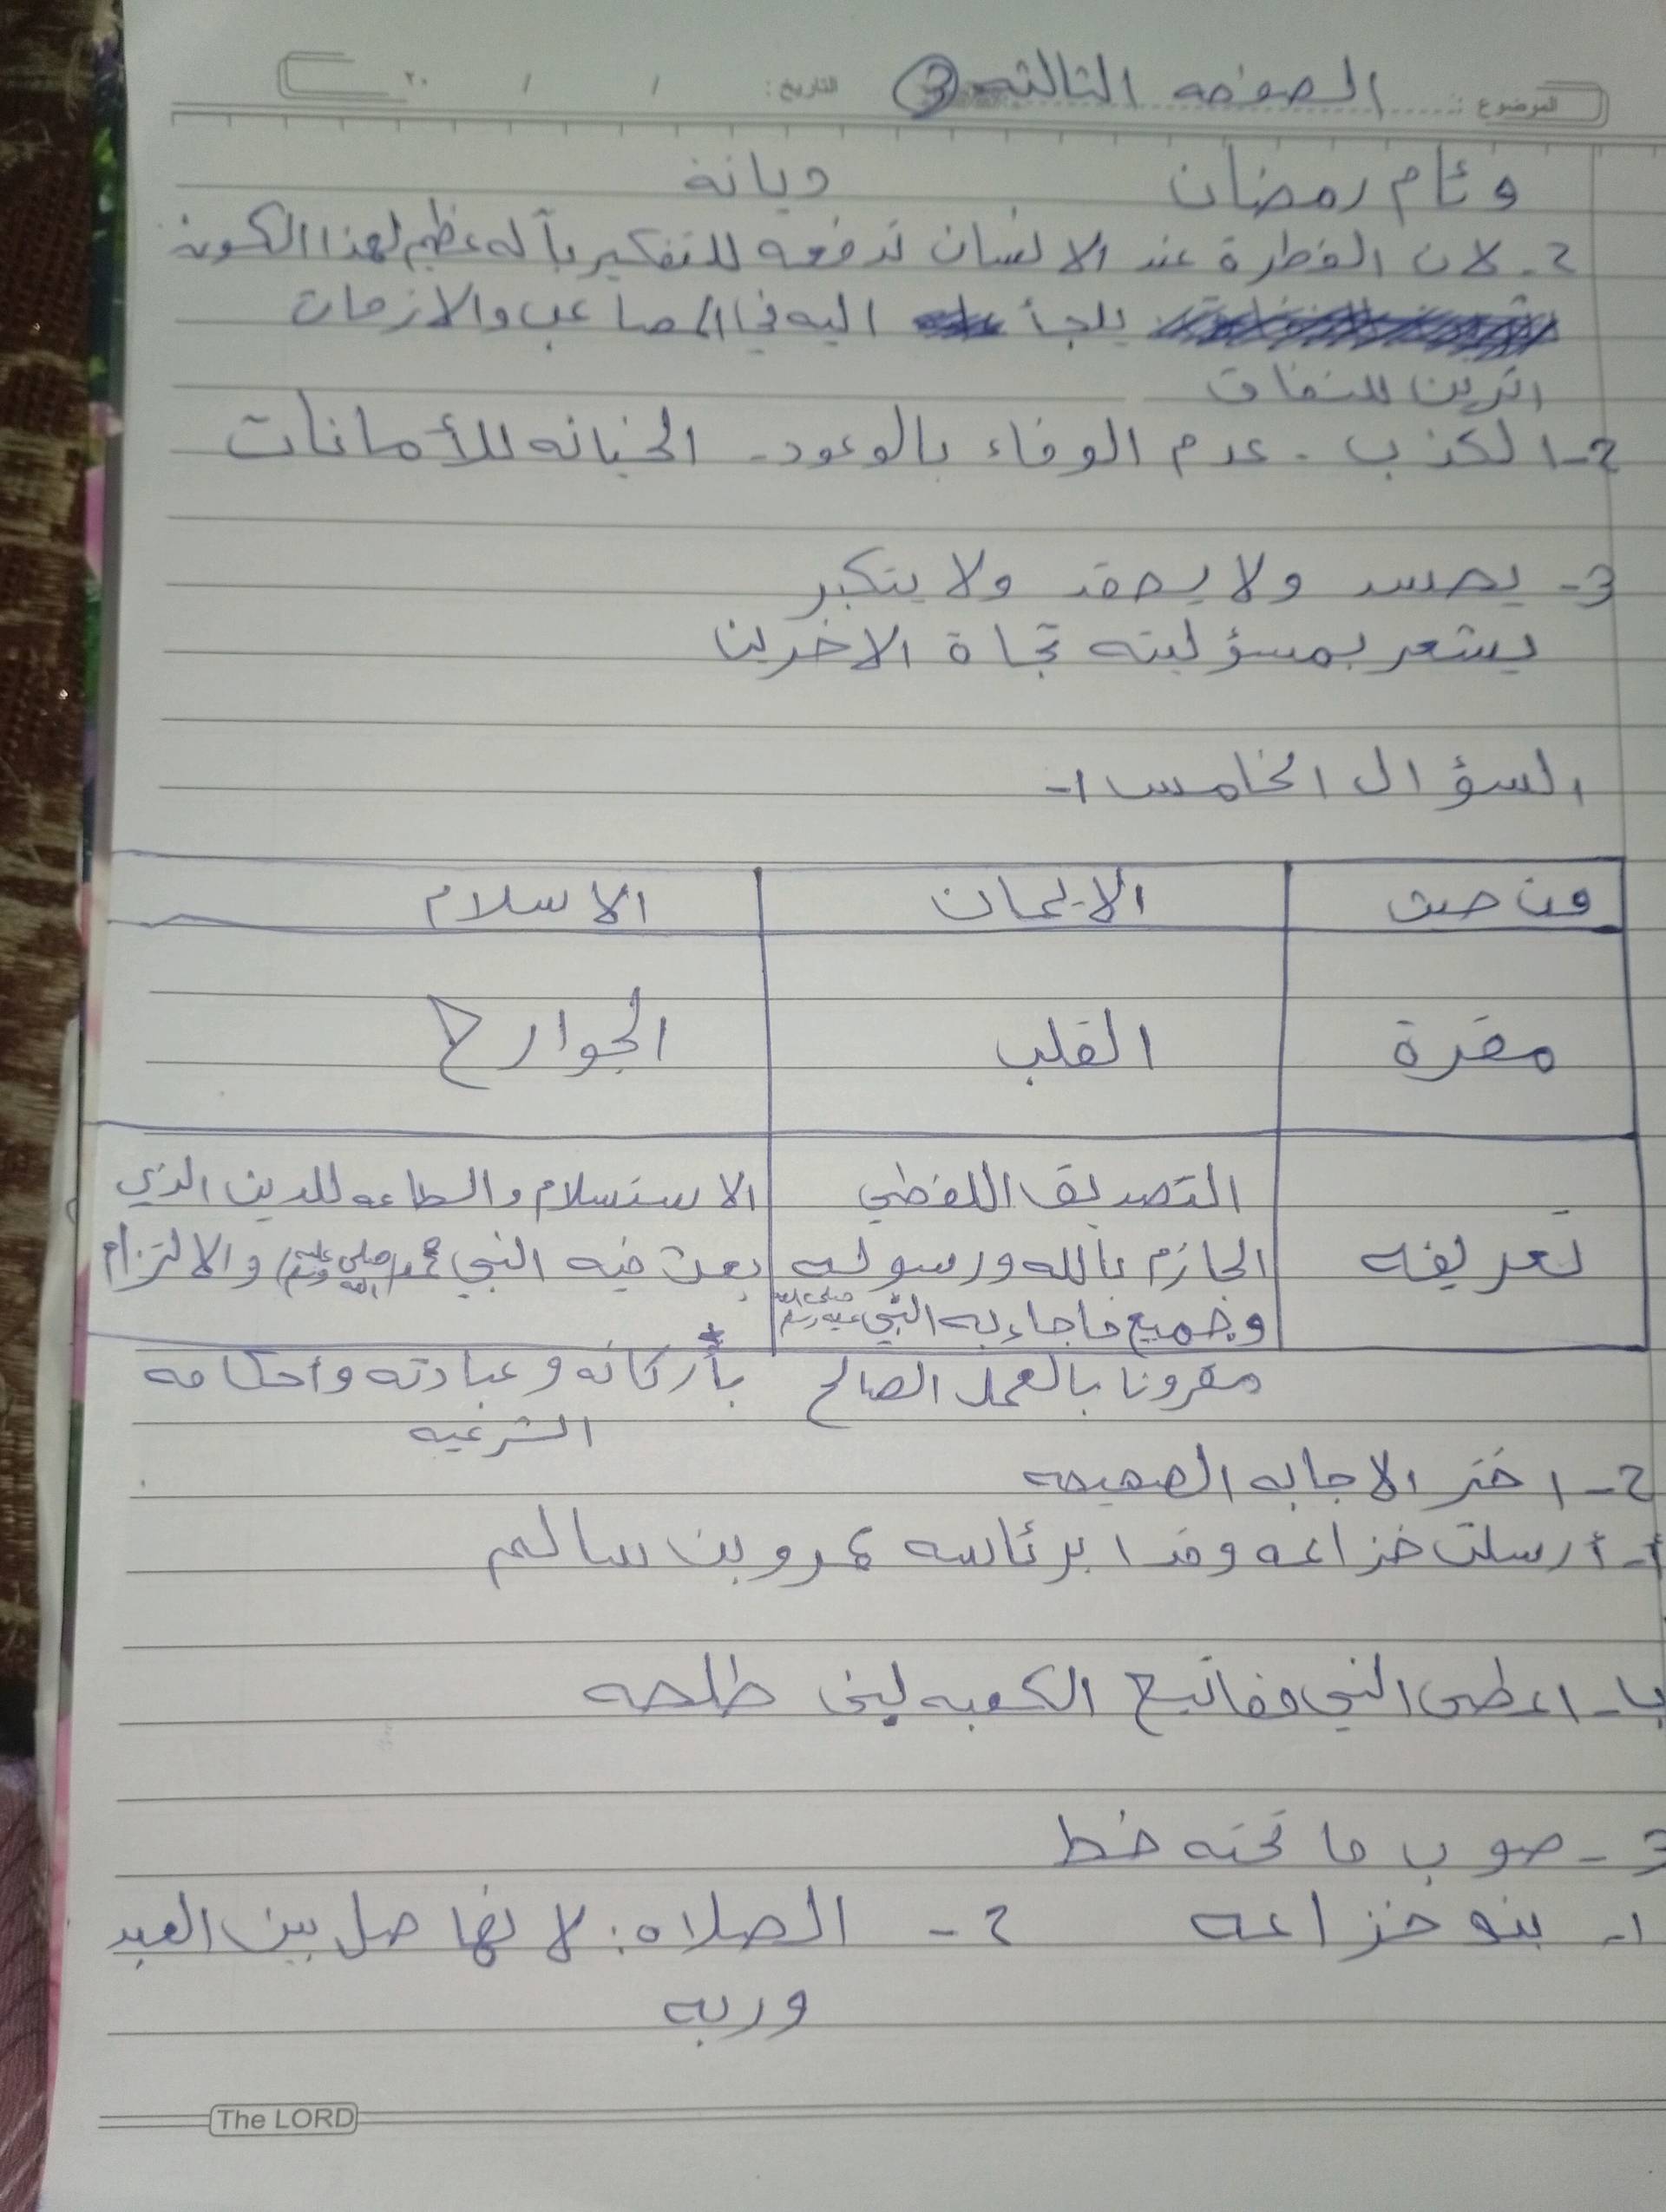 الموضوع: الصفحه الثالثه 3 التاريخ: / / ٢٠
وئام رمضان ديانة
2- لان الفطرة عند الانسان تدفعه للتفكير بآله عظيم لهذا الكون
يلجأ اليه في المصاعب والازمات
اثرين للنفاق
2- الكذب . عدم الوفاء بالوعود - الخيانه للأمانات
3- يحسد ولا يحقد ولا يتكبر
يشعر بمسؤليته تجاة الاخرين
السؤال الخامس 1-
من حيث الايمان الاسلام
مقرة القلب الجوارح
التصديق اللفظي الاستسلام والطاعه للدين الذي
تعريفه الجازم بالله ورسوله بعث فيه النبي محمد (صلى الله عليه وسلم) والالتزام
وجميع ماجاء به النبي صلى الله عليه وسلم
مقرونا بالعمل الصالح بأركانه وعبادته وأحكامه
الشرعيه
2- اختر الاجابه الصحيحه
أ- أرسلت خزاعه وفدا برئاسه عمرو بن سالم
ب- اعطى النبي مفاتيح الكعبه لبني طلحه
3- صوب ما تحته خط
1- بنو خزاعه 2- الصلاه: لانها صل بين العبد
وربه
The LORD